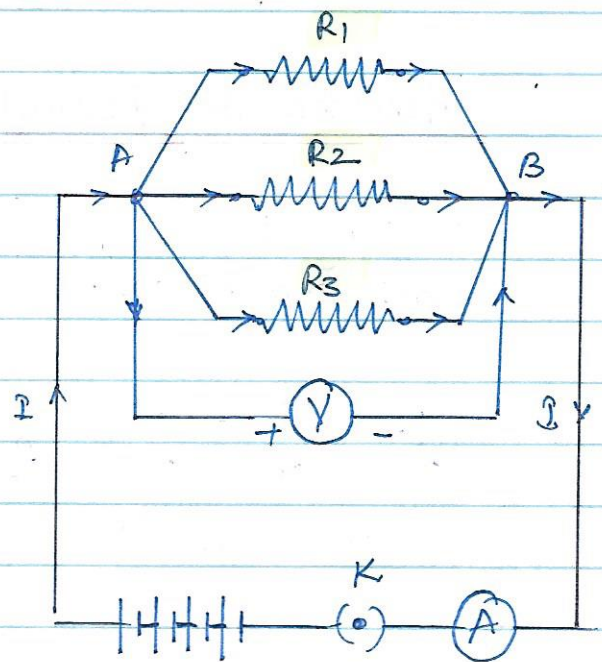 R1
A
R2
B
R3
I
V
I
+ -
K
A